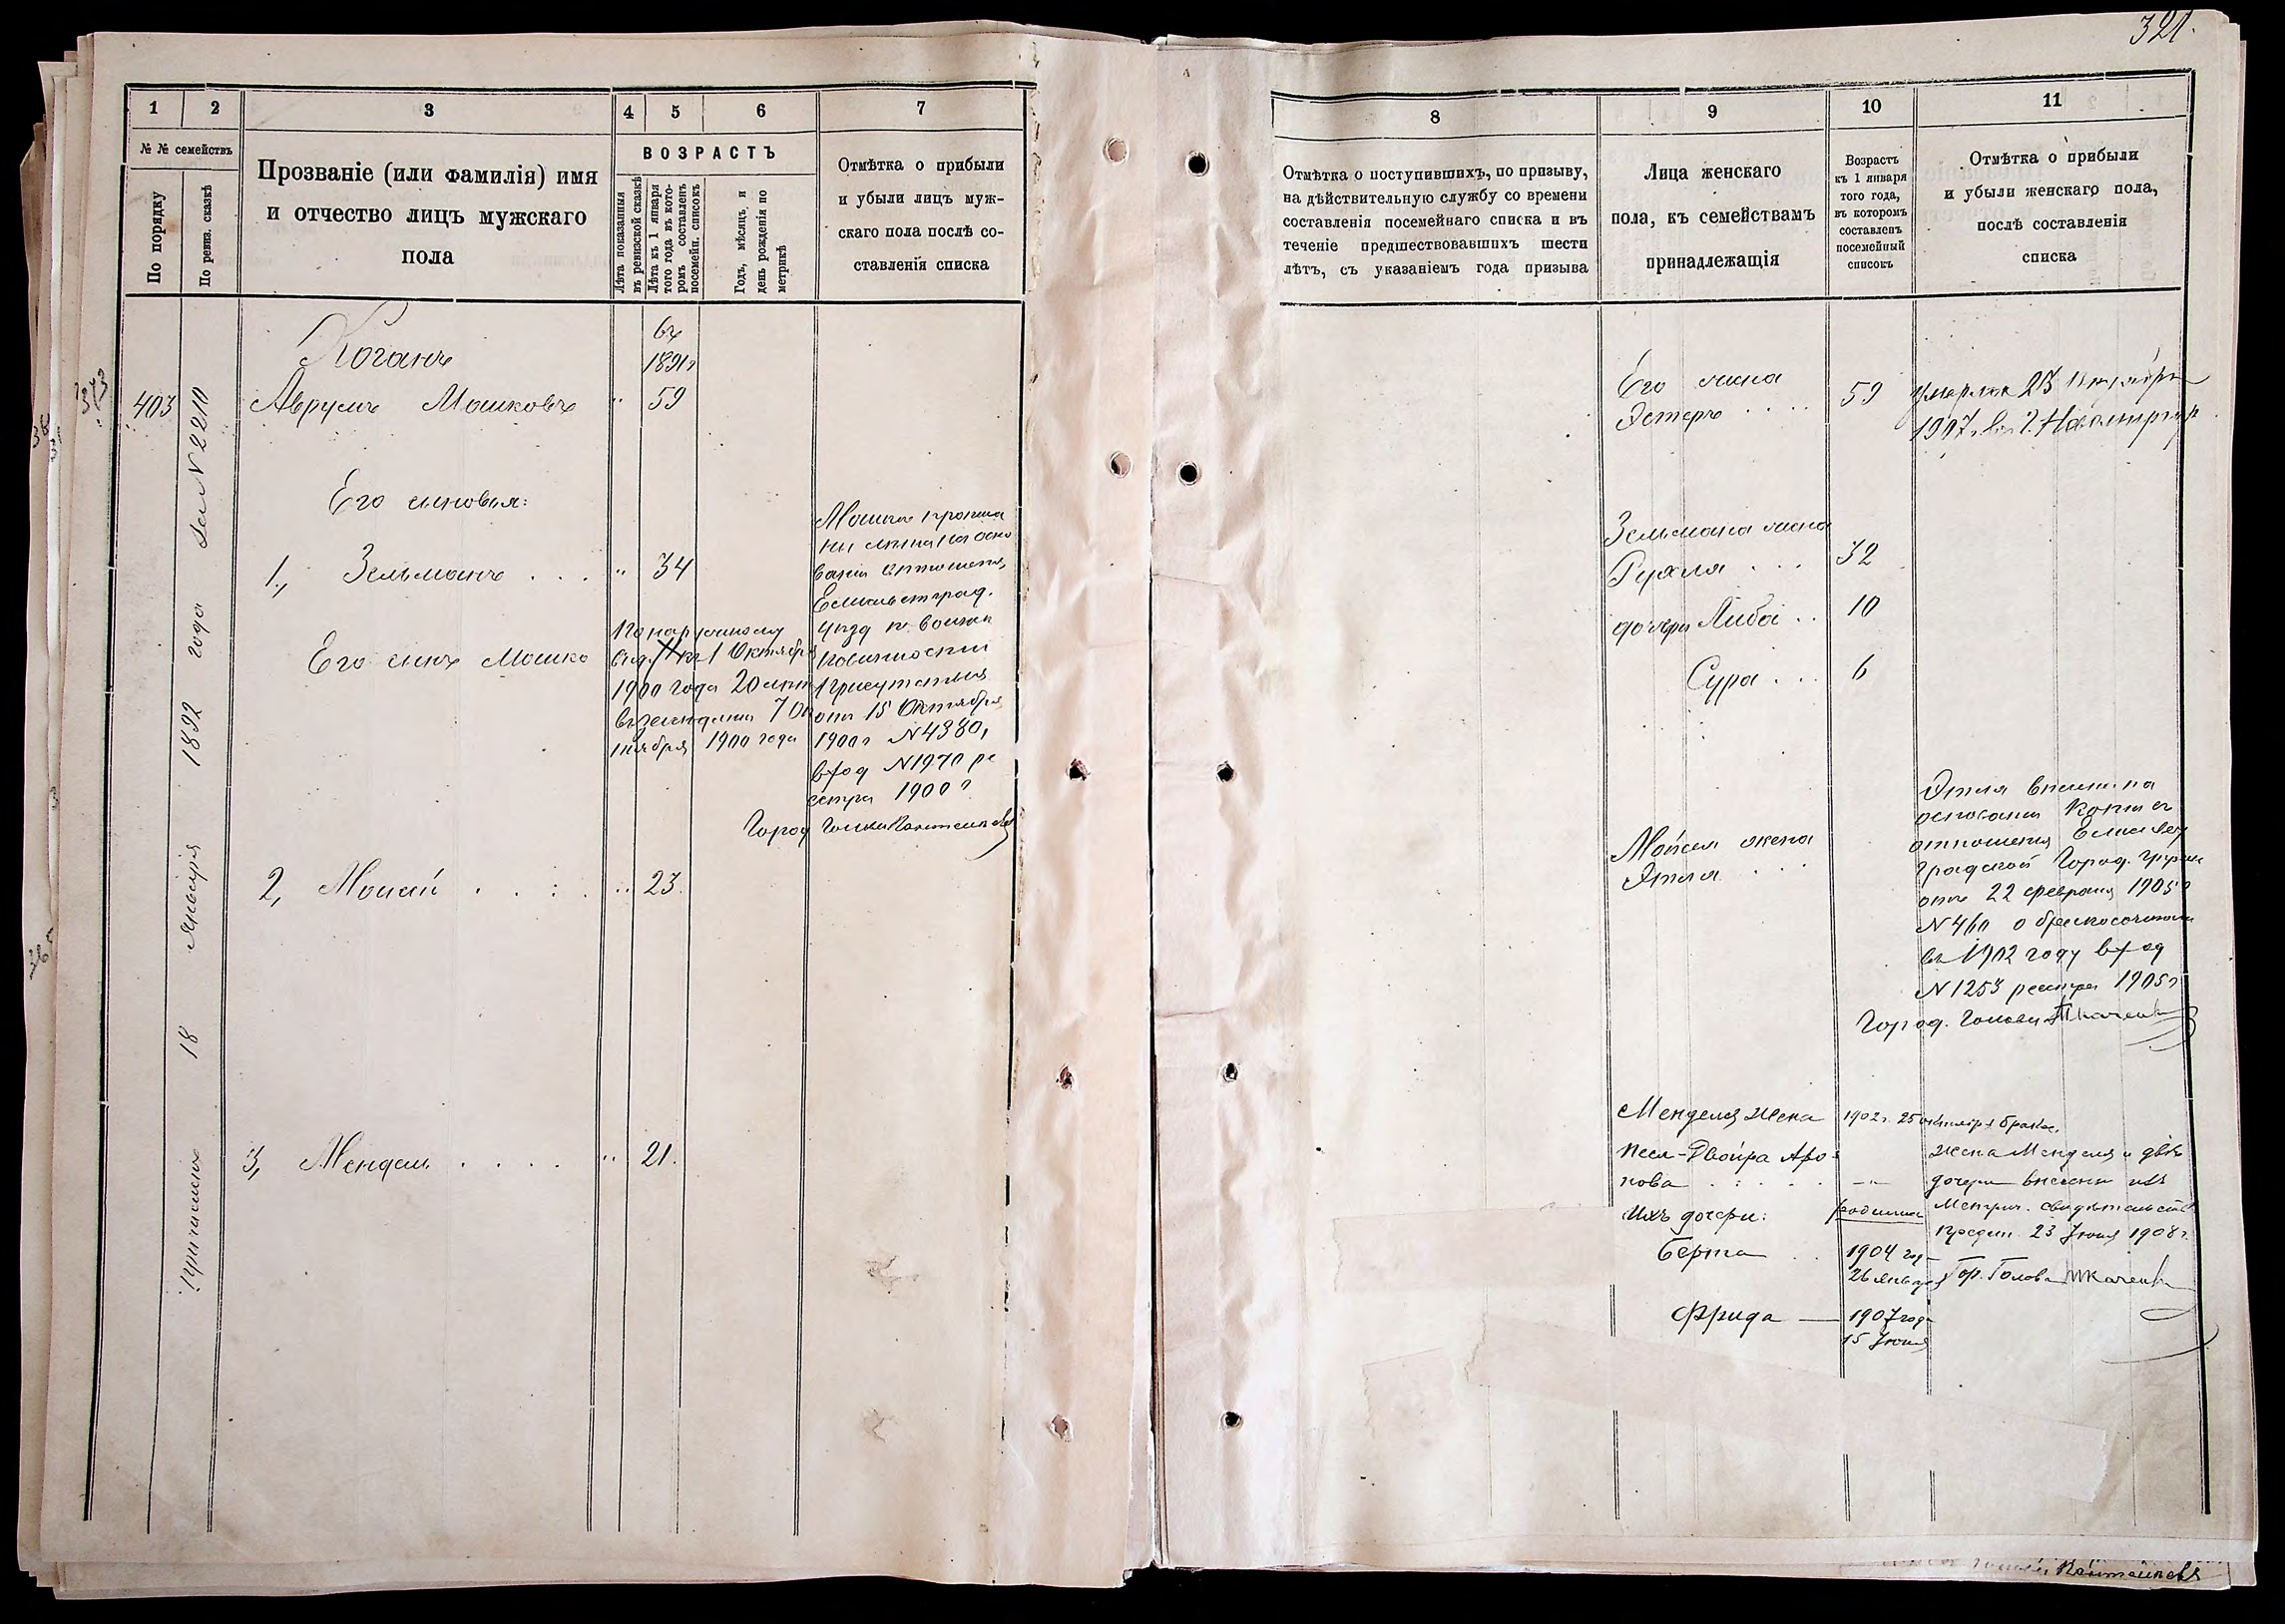 321.
1
2
3
4
5
6
7
№ № семействъ
По порядку
По ревиз. сказкѣ
Прозваніе (или фамилія) имя
и отчество лицъ мужскаго
пола
ВОЗРАСТЪ
Лѣта показанныя
въ ревизской сказкѣ
Лѣта къ 1 января
того года въ кото-
ромъ составленъ
посемейн. списокъ
Годъ, мѣсяцъ и
день рожденія по
метрикѣ
Отмѣтка о прибыли
и убыли лицъ муж-
скаго пола послѣ со-
ставленія списка
373
403
1892 года № 2210
18 Января
Коганъ
въ
1891 г
Аврумъ Мошковъ
59
Его сыновья:
1, Зельманъ . . .
34
Его сынъ Мошко
По наружному
виду къ 1 Октября
1900 года 20 лѣтъ
7 Ок
тября 1900 года
Мошко
отношенія
Елисаветград.
Присутствія
отъ 15 Октября
1900 г № 4380,
вход № 1970 ре
естра 1900 г
Город Голова
2, Мойсей . . : .
23.
3, Мендель . . . .
21.
8
9
10
11
Отмѣтка о поступившихъ, по призыву,
на дѣйствительную службу со времени
составленія посемейнаго списка и въ
теченіе предшествовавшихъ шести
лѣтъ, съ указаніемъ года призыва
Лица женскаго
пола, къ семействамъ
принадлежащія
Возрастъ
къ 1 января
того года,
въ которомъ
составленъ
посемейный
списокъ
Отмѣтка о прибыли
и убыли женскаго пола,
послѣ составленія
списка
Его жена
Эстеръ . . . .
59
умерла 23
1907 г. въ г.
Зельмана жена
Рухля . . .
32
дочери Либа . .
10
Сура . . .
6
Мойсея жена
Этля . . .
Этля внесена на
основаніи копіи съ
отношенія Елисавет
градской Город. Управы
отъ 22 февраля 1905 г
№ 460 о бракосочетаніи
въ 1902 году вход
№ 1253 реестра 1905 г
Город. Голова Ткаченко
Менделя жена
1902 г. 25 октября бракъ.
Песя-Двойра Аро-
нова . : . . .
жена Менделя и двѣ
дочери внесены изъ
Метрич. свидѣтельствъ
23 Іюня 1908 г.
Ихъ дочери:
родилась
Берта . .
1904 год
26 января
Гор. Голова Ткаченко
Фрида —
1907 год
15 Іюня